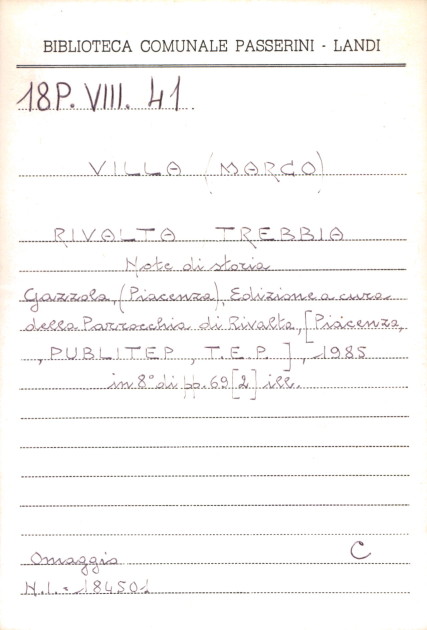 BIBLIOTECA COMUNALE PASSERINI - LANDI
18P. VIII. 41
VILLA (MARCO)
RIVALTA TREBBIA
Note di storia
Gazzola, (Piacenza), Edizione a cura
della Parrocchia di Rivalta, [Piacenza,
, PUBLITEP, T.E.P.], 1985
in 8° di pp. 69 [2] ill.
Omaggio C
N.I. = 184501